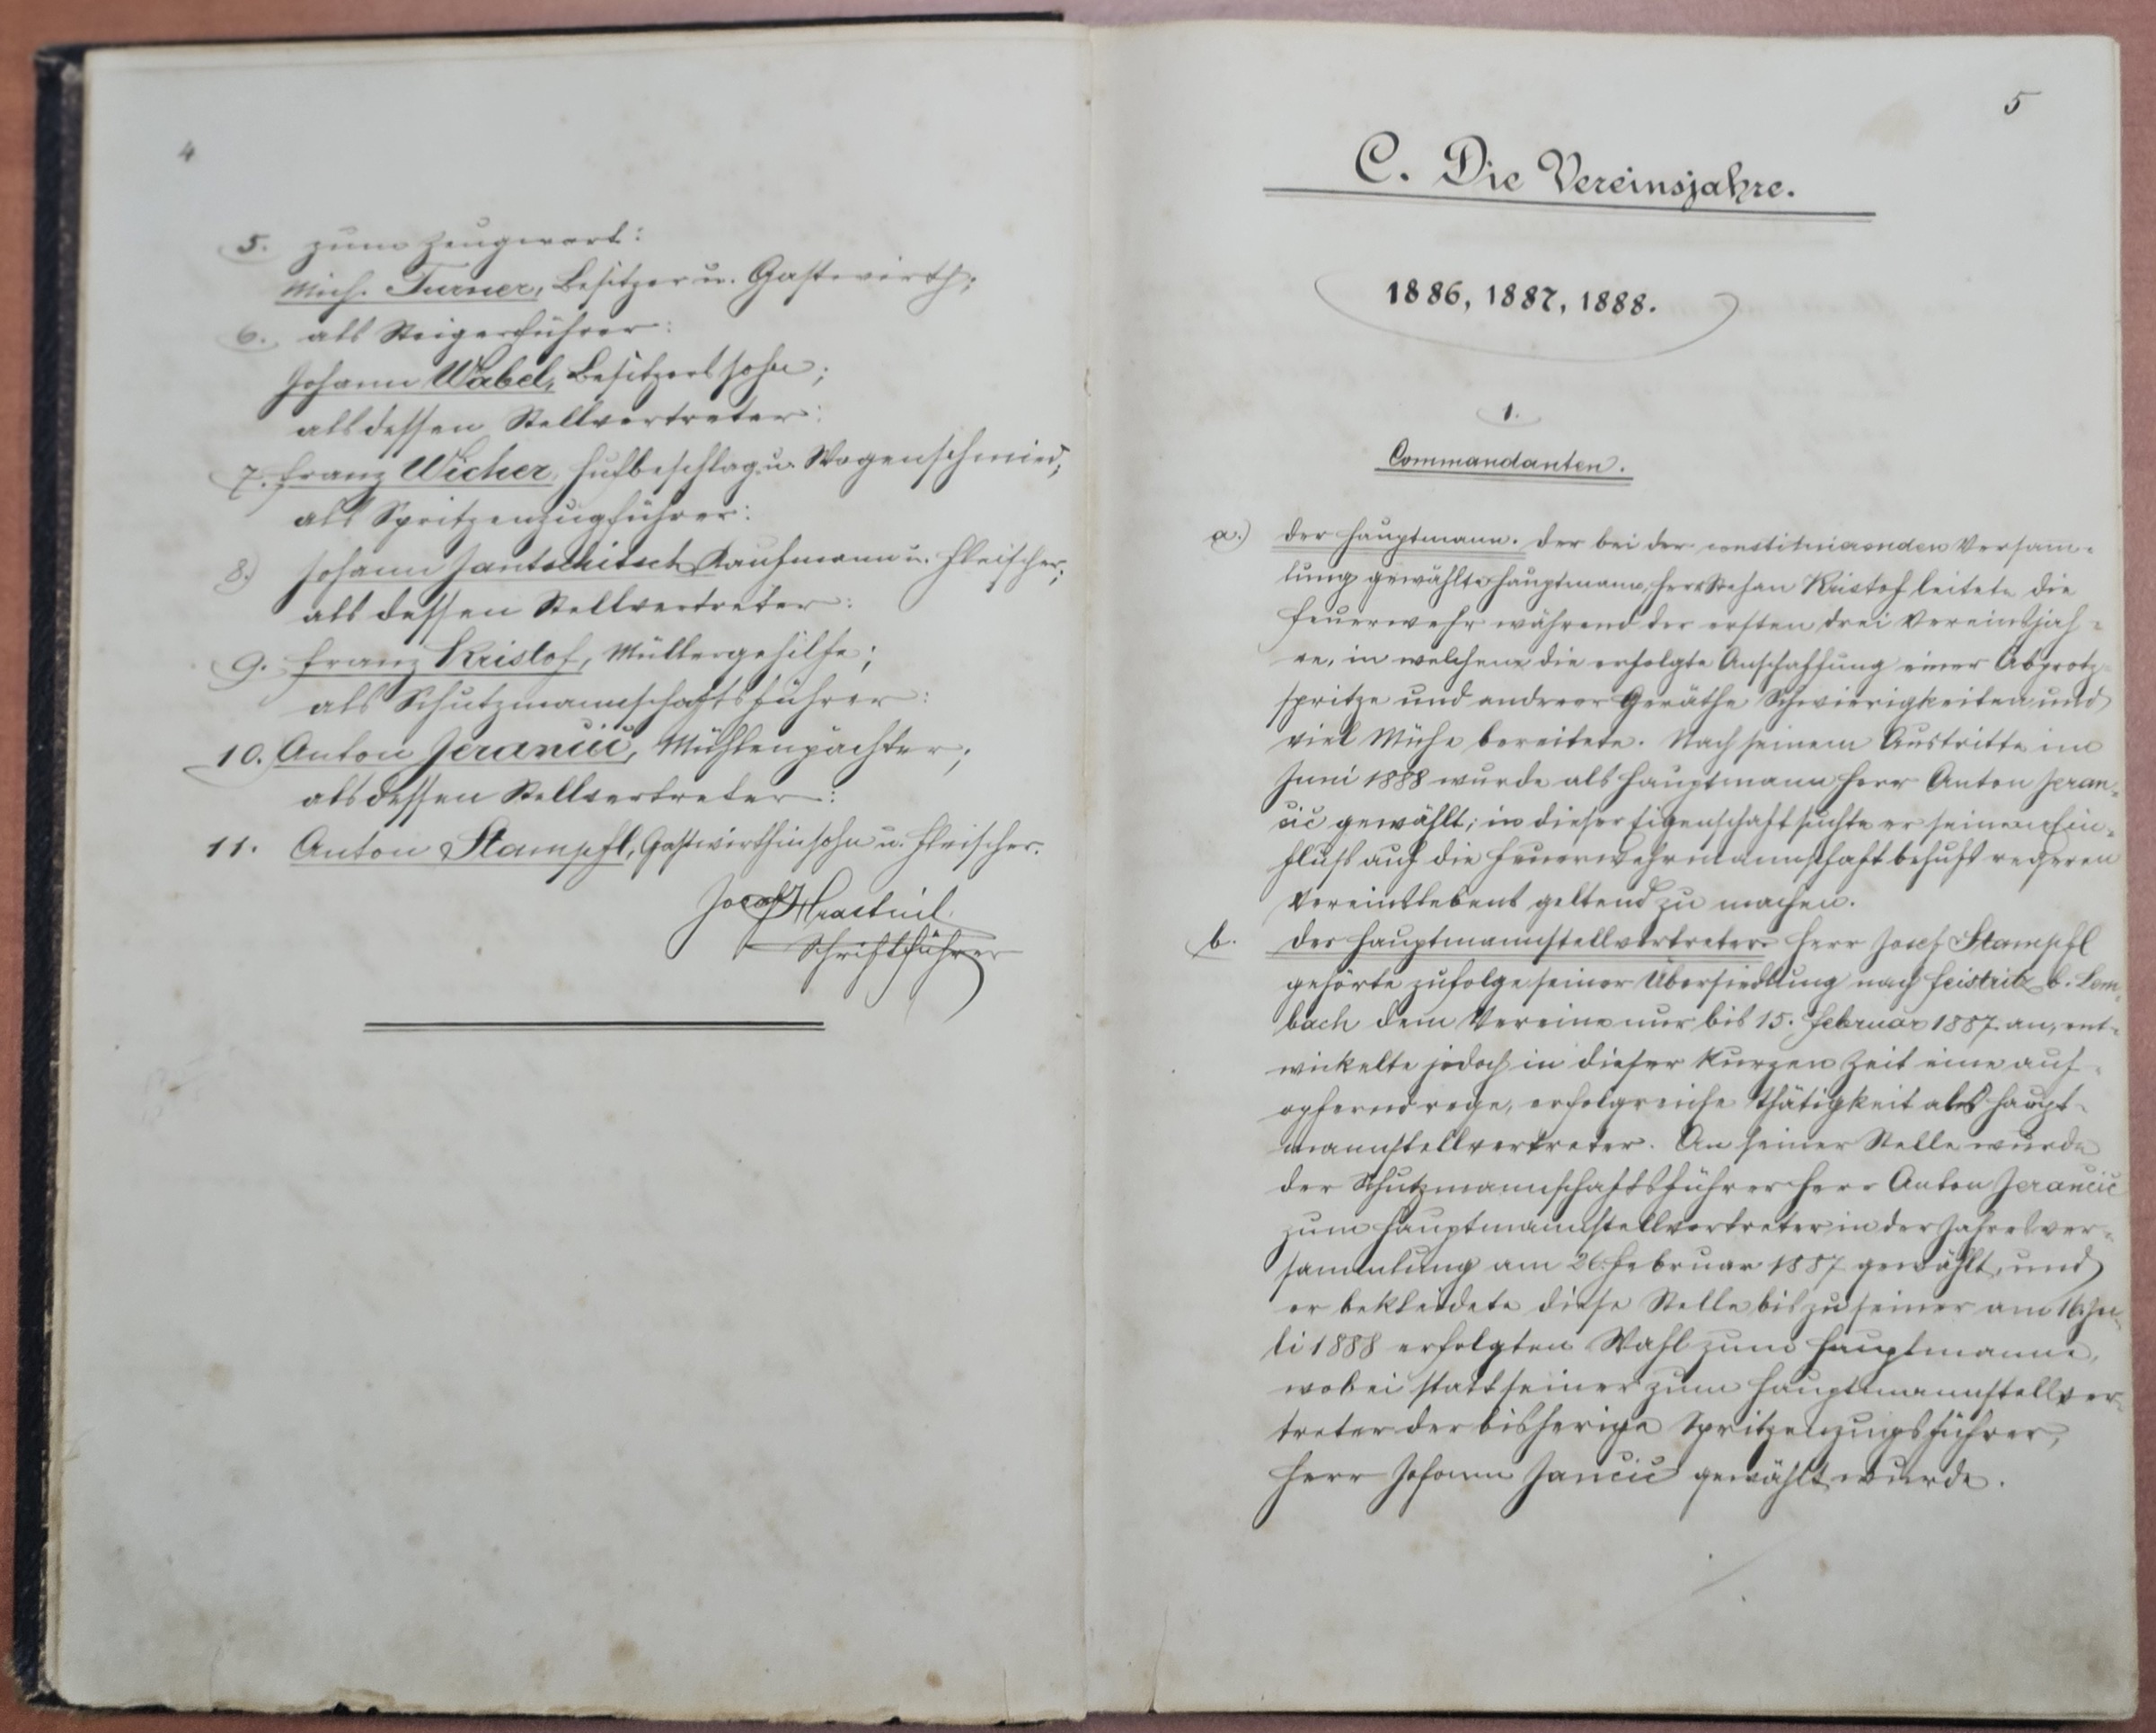 4
5. zum Zeugwart:
Mich. Turner, Besitzer u. Gastwirth;
6. als Steigerführer:
Johann Wabel, Besitzerssohn;
als dessen Stellvertreter:
7. Franz Wicher, Hufbeschlag u. Wagenschmied;
als Spritzenzugführer:
8.) Johann Jantschitsch Kaufmann u. Fleischer;
als dessen Stellvertreter:
9. Franz Kristof, Müllergehilfe;
als Schutzmannschaftsführer:
10. Anton Jerančič, Mühlenpächter;
als dessen Stellvertreter:
11. Anton Stampfl, Gastwirthinsohn u. Fleischer.
Josef
Schriftführer
5
C. Die Vereinsjahre.
1886, 1887, 1888.
1.
Commandanten.
a.) Der Hauptmann. Der bei der constituirenden Versam-
lung gewählte Hauptmann, Herr Stefan Kristof leitete die
Feuerwehr während der ersten drei Vereinsjah-
re, in welchem die erfolgte Anschaffung einer Abprotz-
spritze und anderer Geräthe Schwierigkeiten und
viel Mühe bereitete. Nach seinem Austritte im
Juni 1888 wurde als Hauptmann Herr Anton Jeran-
čič gewählt; in dieser Eigenschaft suchte er seinen Ein-
fluß auf die Feuerwehrmannschaft behufs regeren
Vereinslebens geltend zu machen.
b. Der Hauptmannstellvertreter Herr Josef Stampfl
gehörte zufolge seiner Übersiedlung nach Feistritz b. Lem-
bach dem Vereine nur bis 15. Februar 1887 an, ent-
wickelte jedoch in dieser kurzen Zeit eine auf-
opfernd rege, erfolgreiche Thätigkeit als Haupt-
mannstellvertreter. An seiner Stelle wurde
der Schutzmannschaftsführer Herr Anton Jerančič
zum Hauptmannstellvertreter in der Jahresver-
sammlung am 26. Februar 1887 gewählt, und
er bekleidete diese Stelle bis zu seiner am 16. Ju-
li 1888 erfolgten Wahl zum Hauptmanne,
wobei statt seiner zum Hauptmannstellver-
treter der bisherige Spritzenzugsführer,
Herr Johann Jančič gewählt wurde.